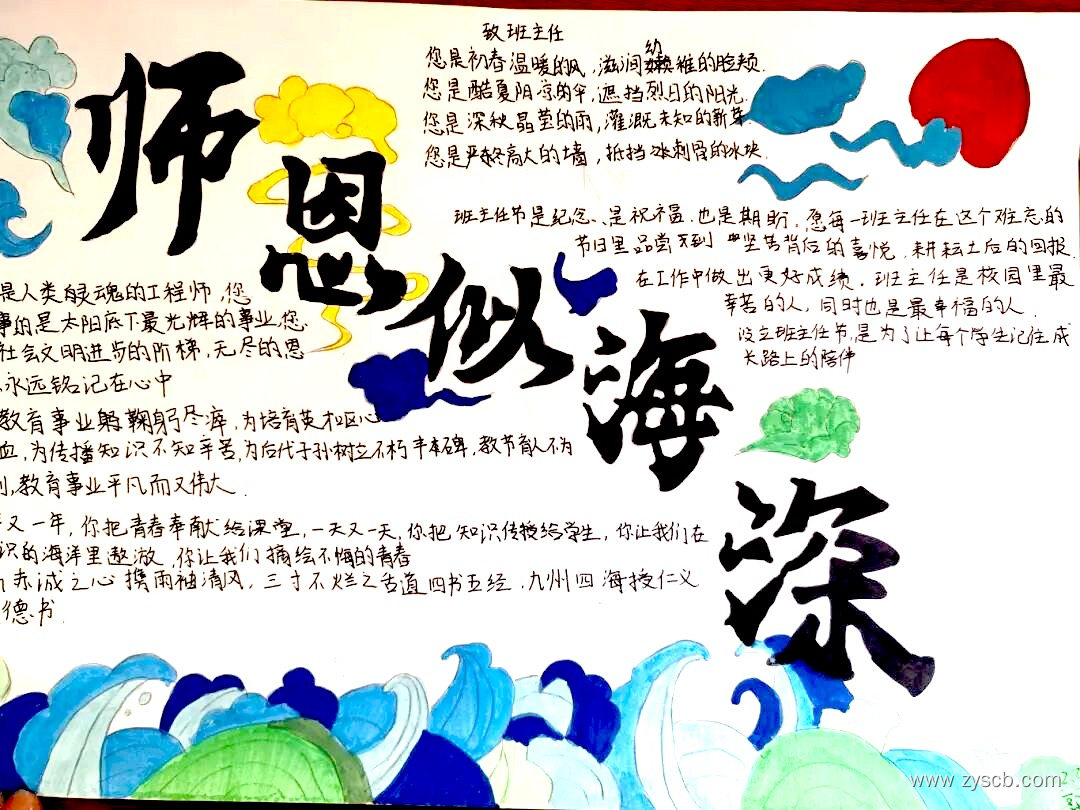 师恩似海深
致班主任
您是初春温暖的风,滋润幼稚的脸颊.
您是酷夏阳凉的伞,遮挡烈日的阳光.
您是深秋晶莹的雨,灌溉未知的新芽.
您是严冬高大的墙,抵挡冰刺骨的冰块.
班主任节是纪念、是祝福.也是期盼.愿每一班主任在这个难忘的
节日里品尝到坚苦背后的喜悦.耕耘土后的回报
在工作中做出更好成绩.班主任是校园里最
辛苦的人,同时也是最幸福的人.
设立班主任节,是为了让每个学生记住成
长路上的陪伴
是人类灵魂的工程师,您
事的是太阳底下最光辉的事业,您
社会文明进步的阶梯,无尽的恩
永远铭记在心中
教育事业鞠躬尽瘁,为培育英才呕心
血,为传播知识不知辛苦,为后代子孙树立不朽丰碑,教书育人不为
利,教育事业平凡而又伟大.
又一年,你把青春奉献给课堂,一天又一天,你把知识传授给学生,你让我们在
识的海洋里遨游.你让我们描绘不悔的青春
赤诚之心携雨袖清风,三寸不烂之舌道四书五经.九州四海授仁义
德书.
www.zyscb.com